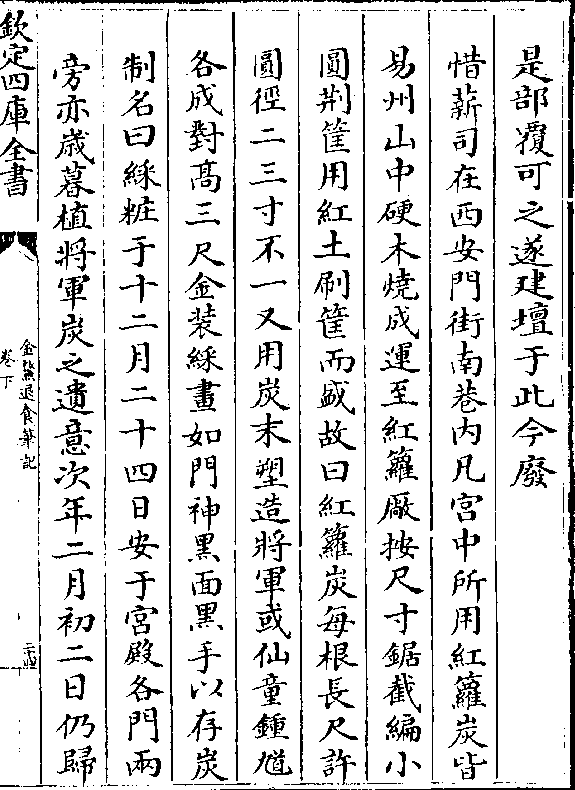 是部覆可之遂建壇于此今廢
惜薪司在西安門街南巷内凡宮中所用紅籮炭皆
易州山中硬木燒成運至紅籮厰按尺寸鋸截編小
圓荆筐用紅土刷筐而盛故曰紅籮炭每根長尺許
圓徑二三寸不一又用炭末塑造將軍或仙童鍾馗
各成對髙三尺金装綵畫如門神黒面黒手以存炭
制名曰綵粧于十二月二十四日安于宮殿各門兩
旁亦歳暮植將軍炭之遺意次年二月初二日仍歸
欽定四庫全書
金鰲退食筆記
卷下